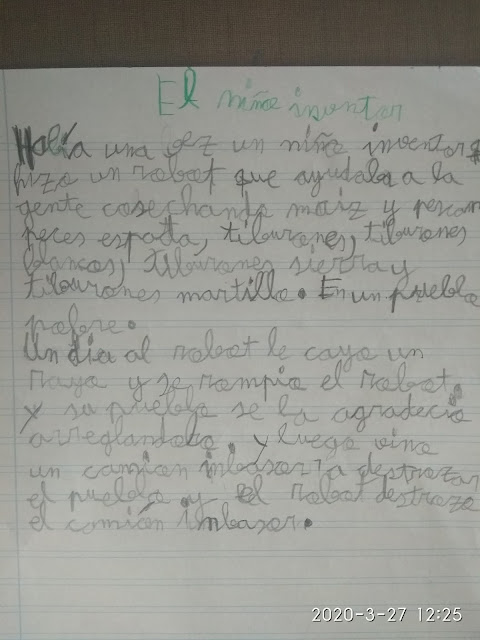 El niño inventor
Había una vez un niño inventor
hizo un robot que ayudaba a la
gente cosechando maiz y pescan
peces espada, tiburones, tiburones
blancos, tiburones sierra y
tiburones martillo. En un pueblo
pobre.
Un dia al robot le cayo un
rayo y se rompio el robot,
y su pueblo se la agradecio
arreglandolo. y luego vino
un camion imbasor ra destrozar
el pueblo y el robot destrozo
el camión imbasor.
2020-3-27 12:25